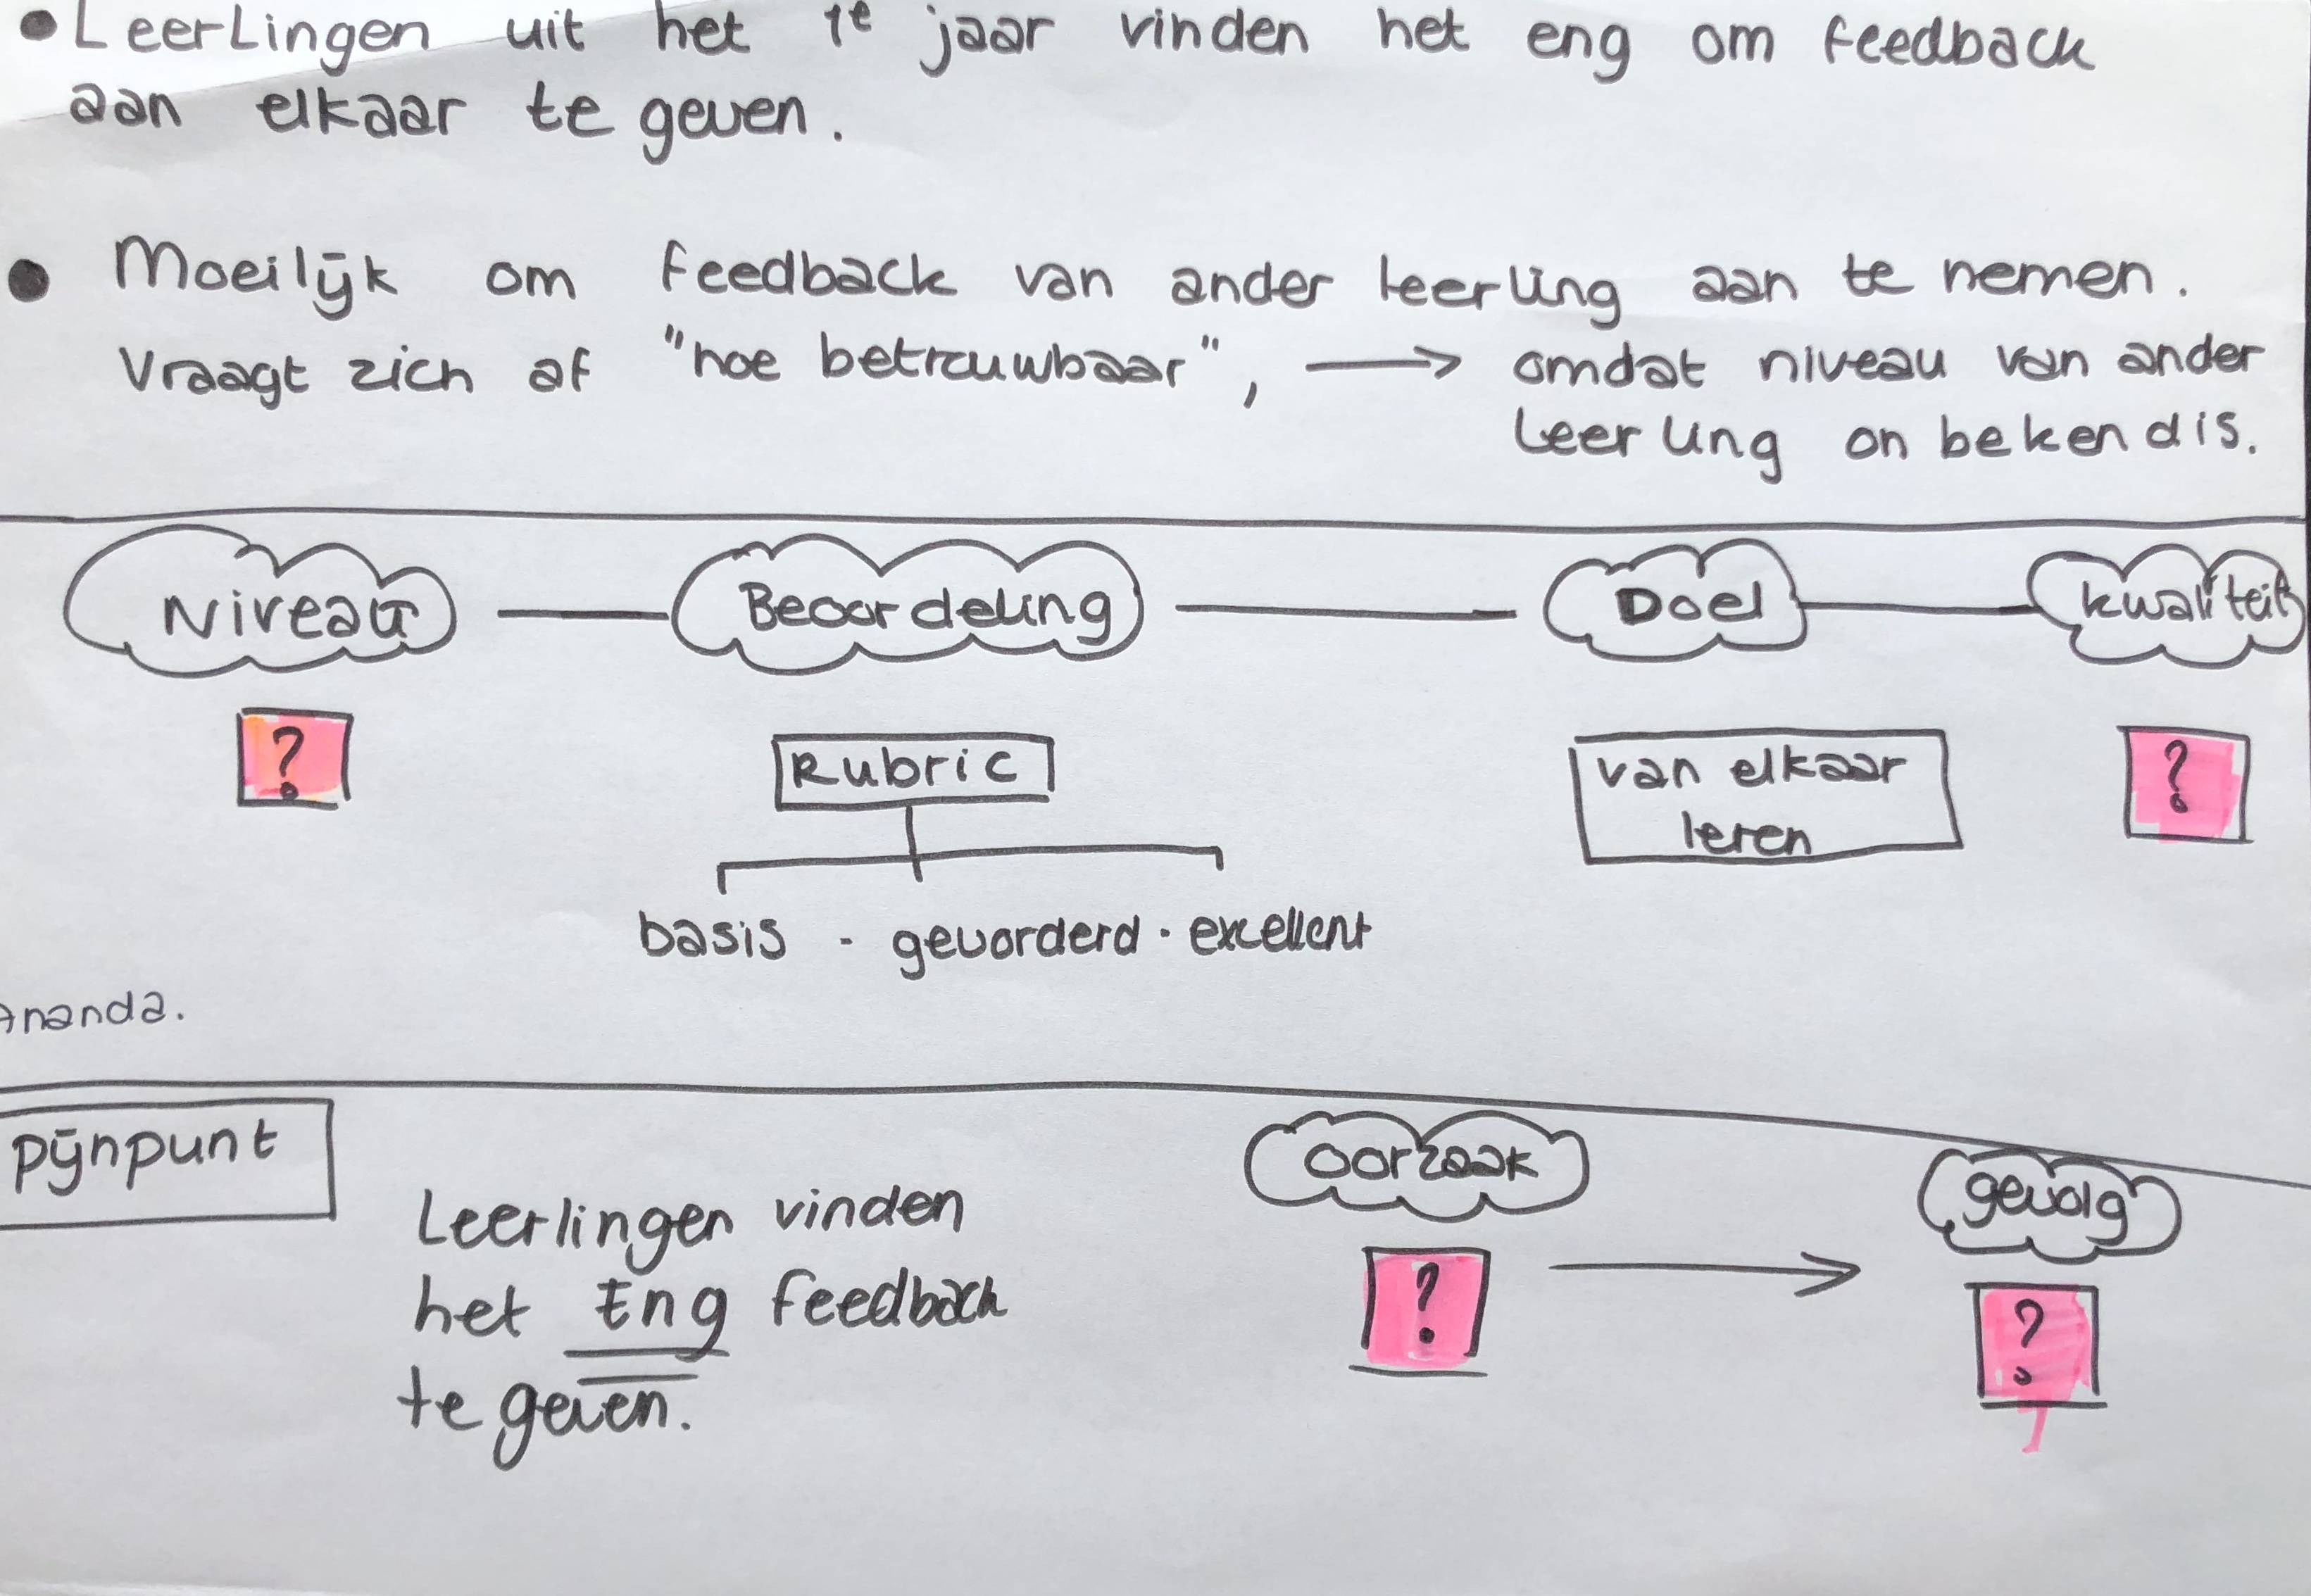 • Leerlingen uit het 1e jaar vinden het eng om feedback
aan elkaar te geven.
• Moeilijk om feedback van ander leerling aan te nemen.
Vraagt zich af "hoe betrouwbaar", → omdat niveau van ander
leerling onbekend is.
Niveau — Beoordeling — Doel — kwaliteit
?
Rubric
van elkaar
leren
?
basis - gevorderd · excellent
Ananda.
pijnpunt
Leerlingen vinden
het Eng feedback
te geven.
oorzaak
gevolg
? → ?